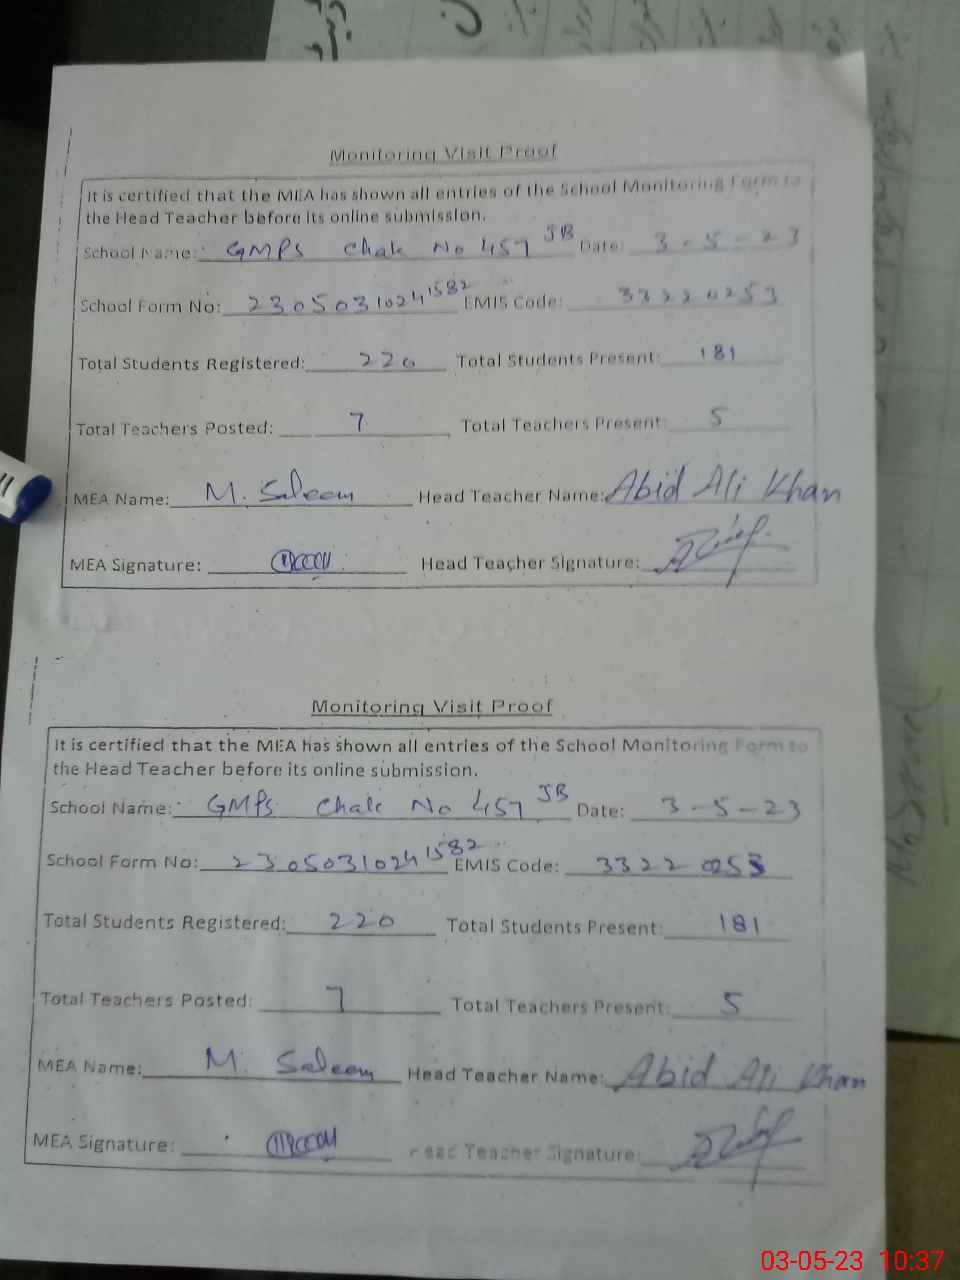 Monitoring Visit Proof
It is certified that the MEA has shown all entries of the School Monitoring Form to
the Head Teacher before its online submission.
School Name: GMPS Chak No 457 JB Date: 3-5-23
School Form No: 23050310241582 EMIS Code: 33220253
Total Students Registered: 220 Total Students Present: 181
Total Teachers Posted: 7 Total Teachers Present: 5
MEA Name: M. Saleem Head Teacher Name: Abid Ali Khan
MEA Signature: Head Teacher Signature:
Monitoring Visit Proof
It is certified that the MEA has shown all entries of the School Monitoring Form to
the Head Teacher before its online submission.
School Name: GMPS Chak No 457 JB Date: 3-5-23
School Form No: 23050310241582 EMIS Code: 33220253
Total Students Registered: 220 Total Students Present: 181
Total Teachers Posted: 7 Total Teachers Present: 5
MEA Name: M. Saleem Head Teacher Name: Abid Ali Khan
MEA Signature: Head Teacher Signature:
03-05-23 10:37